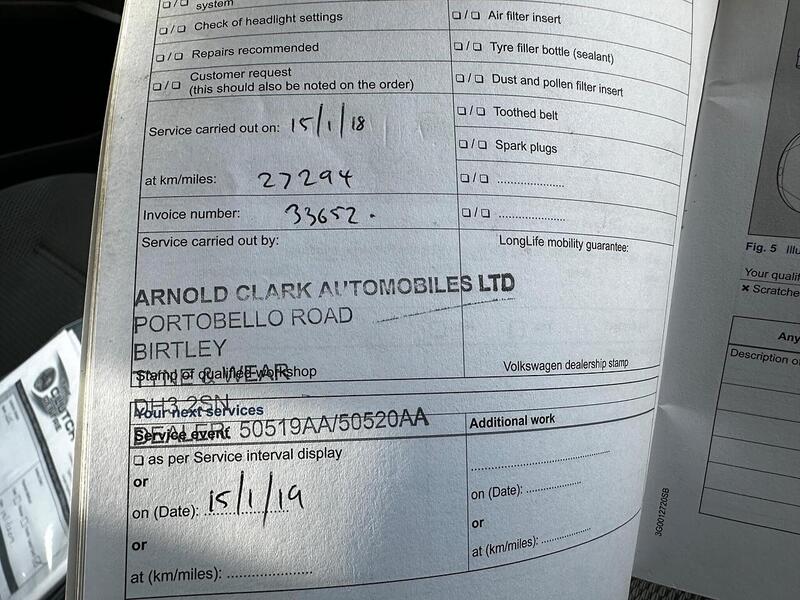 system
❏ / ❏ Check of headlight settings
❏ / ❏ Repairs recommended
❏ / ❏ Customer request
(this should also be noted on the order)
❏ / ❏ Air filter insert
❏ / ❏ Tyre filler bottle (sealant)
❏ / ❏ Dust and pollen filter insert
❏ / ❏ Toothed belt
❏ / ❏ Spark plugs
❏ / ❏ ......................
❏ / ❏ ......................
Service carried out on: 15/1/18
at km/miles: 27294
Invoice number: 33652.
Service carried out by:
LongLife mobility guarantee:
ARNOLD CLARK AUTOMOBILES LTD
PORTOBELLO ROAD
BIRTLEY
TYNE & WEAR
Stamp of qualified workshop
Volkswagen dealership stamp
DH3 2SN
Your next services
DEALER 50519AA/50520AA
Service event
❏ as per Service interval display
or
on (Date): 15/1/19
or
at (km/miles): ......................
Additional work
on (Date): ................
or
at (km/miles): ................
3G0012720SB
Fig. 5
Your
✖ Scratche
Any
Description
CLUTCH